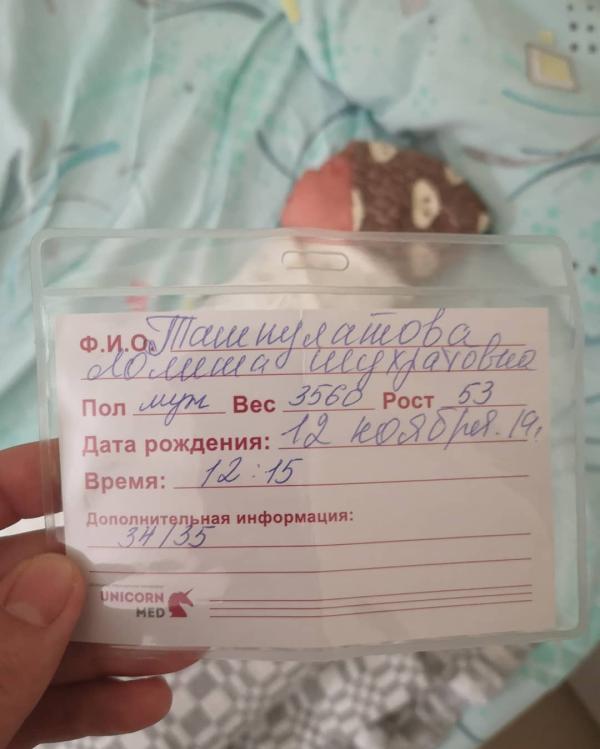 Ф.И.О. Ташпулатова
Лолита Шухратовна
Пол муж Вес 3560 Рост 53
Дата рождения: 12 ноября. 19г.
Время: 12:15
Дополнительная информация:
34/35
UNICORN
MED